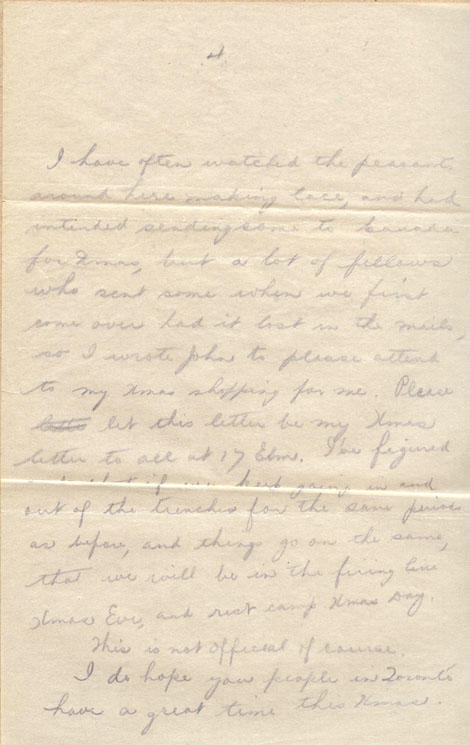 4
I have often watched the peasants
round here making lace, and had
intended sending some to Canada
for Xmas, but a lot of fellows
who sent some when we first
come over had it lost in the mails,
so I wrote John to please attend
to my Xmas shopping for me. Please
let this letter be my Xmas
letter to all at 17 Elm. I've figured
out that if we keep going in and
out of the trenches for the same periods
as before, and things go on the same,
that we will be in the firing line
Xmas Eve, and rest camp Xmas Day.
This is not official of course.
I do hope you people in Toronto
have a great time this Xmas.